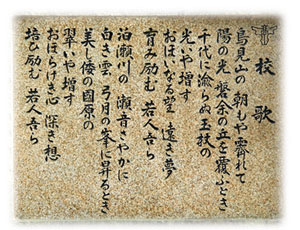 校歌
鳥見山の 朝もや霽れて
陽の光 磐余の丘を 覆ふとき
千代に渝らぬ 玉杖の
光いや増す
おほいなる望 遠き夢
育み励む 若人吾ら
泊瀬川の 瀬音さやかに
白き雲 弓月の峯に 昇るとき
美し倭の 國原の
翠いや増す
おほらけき心 深き想
培ひ励む 若人吾ら